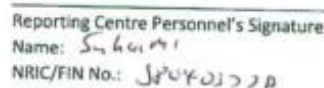 Reporting Centre Personnel's Signature
Name: Suhaimi
NRIC/FIN No.: